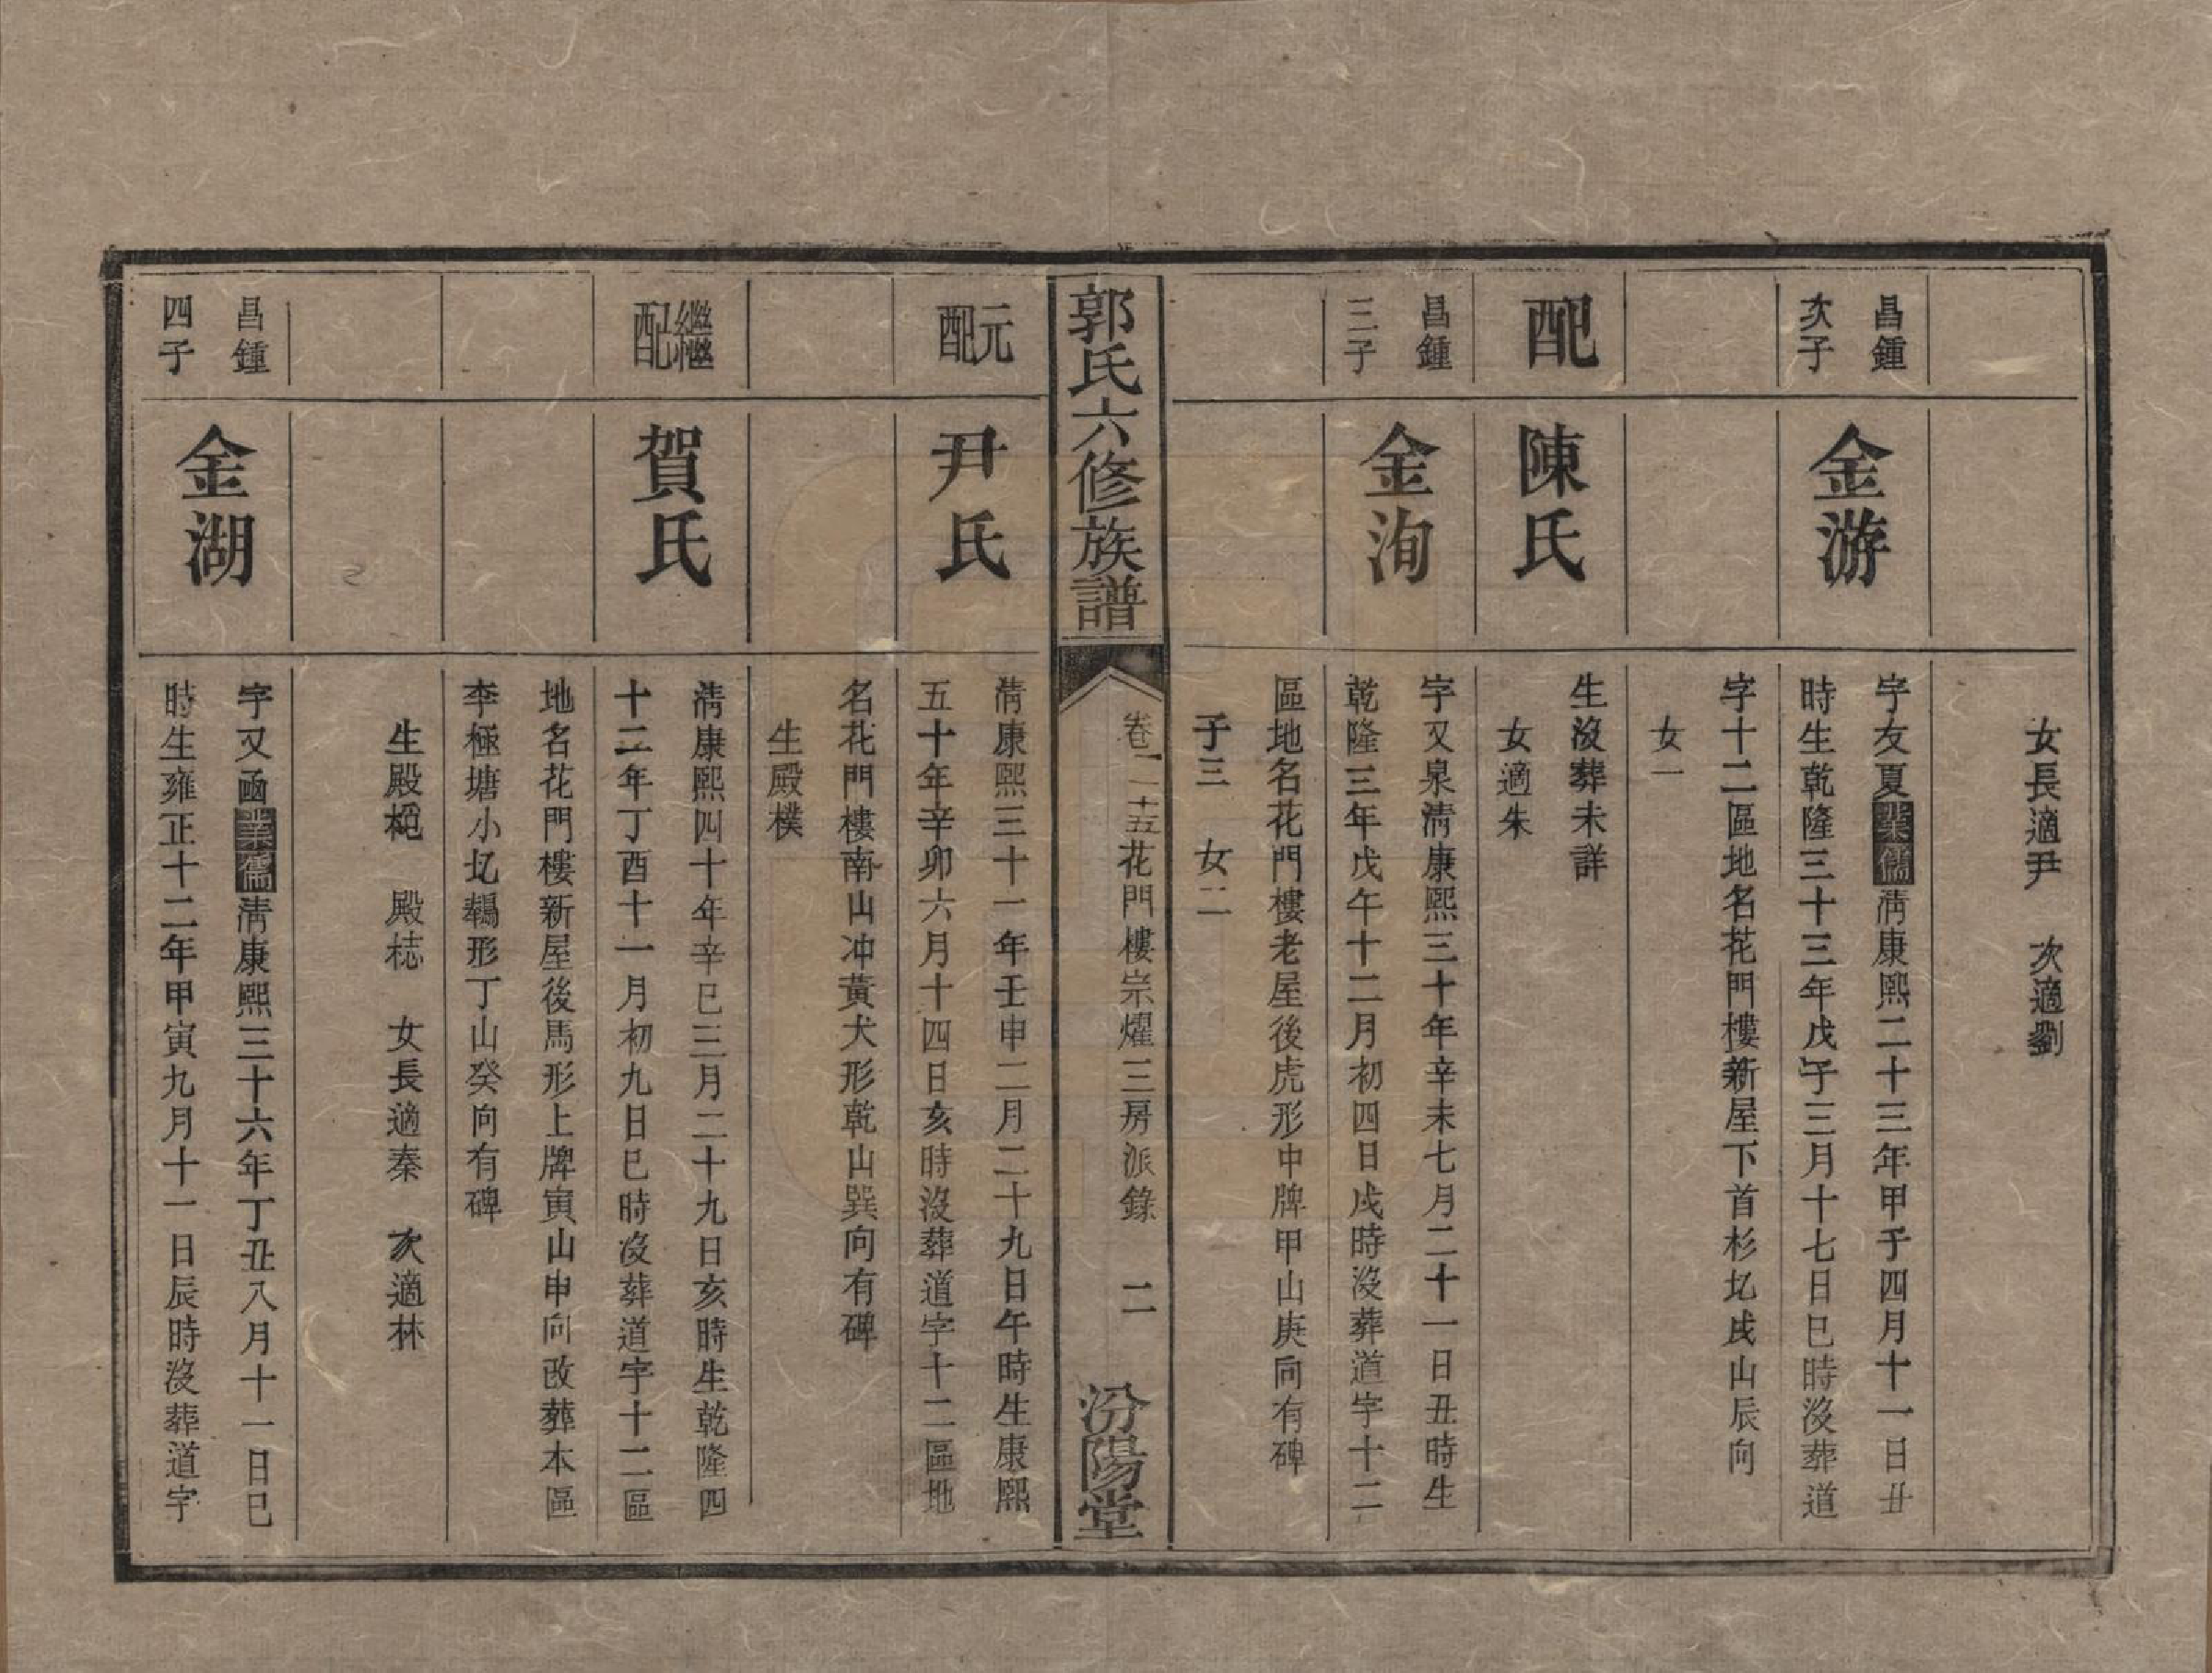 女長適尹　次適劉
昌鍾
次子
金游
字友夏業儒清康熙二十三年甲子四月十一日丑
時生乾隆三十三年戊子三月十七日巳時沒葬道
字十二區地名花門樓新屋下首杉圠戌山辰向
女一
配
陳氏
生沒葬未詳
女適朱
昌鍾
三子
金洵
字又泉清康熙三十年辛未七月二十一日丑時生
乾隆三年戊午十二月初四日戌時沒葬道字十二
區地名花門樓老屋後虎形中牌甲山庚向有碑
子三　女二
郭氏六修族譜
卷二十五花門樓宗燿三房派錄　二
汾陽堂
元配
尹氏
清康熙三十一年壬申二月二十九日午時生康熙
五十年辛卯六月十四日亥時沒葬道字十二區地
名花門樓南山冲黃犬形乾山巽向有碑
生殿樸
繼配
賀氏
清康熙四十年辛巳三月二十九日亥時生乾隆四
十二年丁酉十一月初九日巳時沒葬道字十二區
地名花門樓新屋後馬形上牌寅山申向改葬本區
李極塘小圠鵝形丁山癸向有碑
生殿　殿梽　女長適秦　次適林
昌鍾
四子
金湖
字又函業儒清康熙三十六年丁丑八月十一日巳
時生雍正十二年甲寅九月十一日辰時沒葬道字